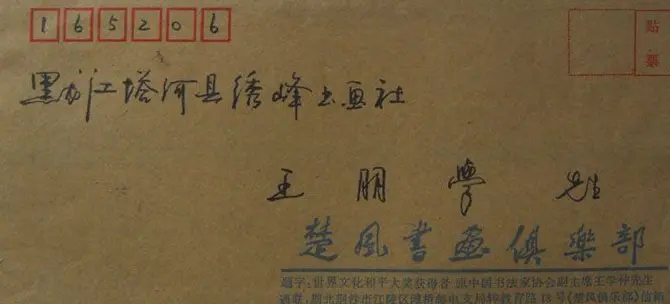 165206
贴票
黑龙江塔河县绣峰书画社
王朋学 先生
楚风書畫俱樂部
题字:世界文化和平大奖获得者 原中国书法家协会副主席王学仲先生